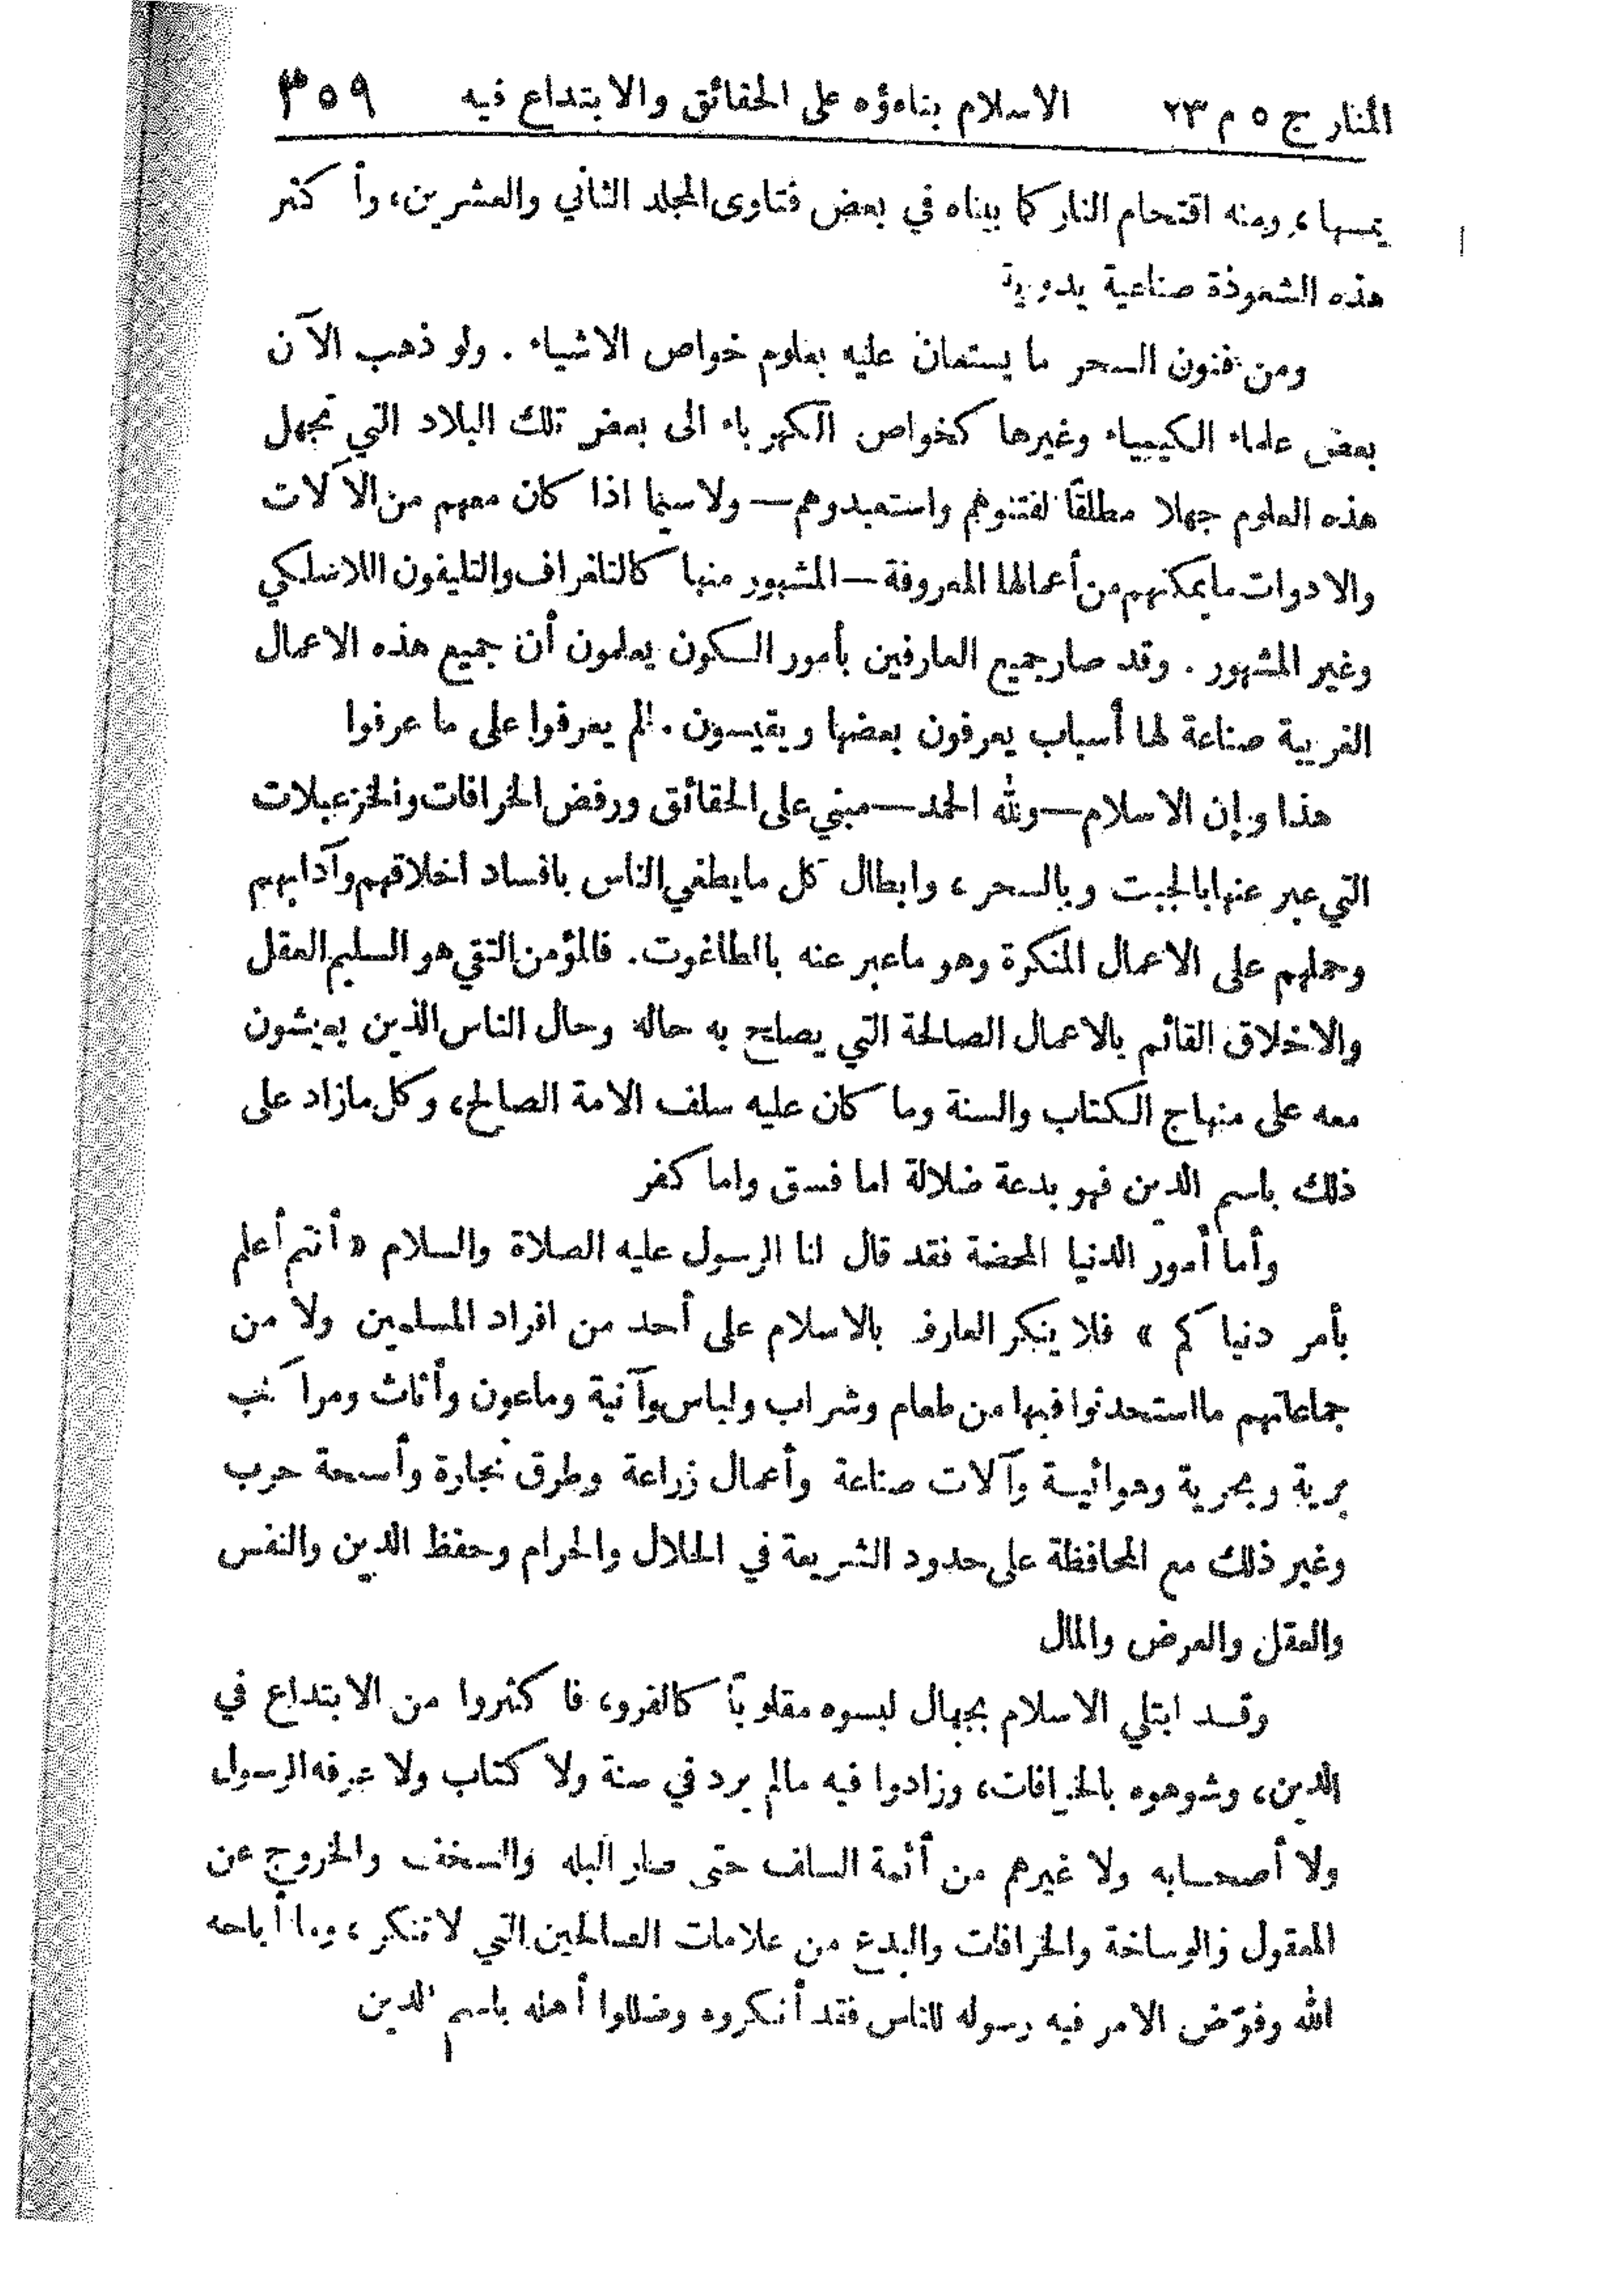 المنار ج ٥ م ٢٣ الاسلام بناءؤه على الحقائق والابتداع فيه ٣٥٩
يمسها، ومنه اقتحام النار كما بيناه في بعض فتاوى المجلد الثاني والعشرين، وأكثر
هذه الشعوذة صناعية يدوية
ومن فنون السحر ما يستعان عليه بعلوم خواص الاشياء . ولو ذهب الآن
بعض علماء الكيمياء وغيرها كخواص الكهرباء الى بعض تلك البلاد التي تجهل
هذه العلوم جهلا مطلقاً لفتنوهم واستعبدوهم — ولا سيما اذا كان معهم من الآلات
والادوات ما يمكنهم من أعمالها المعروفة — المشهور منها كالتلغراف والتليفون اللاسلكي
وغير المشهور . وقد صار جميع العارفين بأمور الكون يعلمون أن جميع هذه الاعمال
الغريبة صناعة لها أسباب يعرفون بعضها ويقيسون . لم يعرفوا على ما عرفوا
هذا وإن الاسلام — ولله الحمد — مبني على الحقائق ورفض الخرافات والخزعبلات
التي عبر عنها بالجبت وبالسحر ، وابطال كل ما يطغي الناس بافساد اخلاقهم وآدابهم
وحملهم على الاعمال المنكرة وهو ما عبر عنه بالطاغوت. فالمؤمن التقي هو السليم العقل
والاخلاق القائم بالاعمال الصالحة التي يصلح به حاله وحال الناس الذين يعيشون
معه على منهاج الكتاب والسنة وما كان عليه سلف الامة الصالح، وكل مازاد على
ذلك باسم الدين فهو بدعة ضلالة اما فسق واما كفر
وأما أمور الدنيا المحضة فقد قال لنا الرسول عليه الصلاة والسلام « أنتم أعلم
بأمر دنياكم » فلا ينكر العارف بالاسلام على أحد من افراد المسلمين ولا من
جماعاتهم مااستحدثوا فيها من طعام وشراب ولباس وآنية وماعون وأثاث ومراكب
برية وبحرية وهوائية وآلات صناعة وأعمال زراعة وطرق تجارة وأسحة حرب
وغير ذلك مع المحافظة على حدود الشريعة في الحلال والحرام وحفظ الدين والنفس
والعقل والعرض والمال
وقد ابتلي الاسلام بجهال لبسوه مقلوباً كالفرو، فاكثروا من الابتداع في
الدين، وشوهوه بالخرافات، وزادوا فيه مالم يرد في سنة ولا كتاب ولا عرفه الرسول
ولا أصحابه ولا غيرهم من أئمة السلف حتى صار البله والسخف والخروج عن
المعقول والوساخة والخرافات والبدع من علامات الصالحين التي لا تنكر ، وما أباحه
الله وفوّض الامر فيه رسوله للناس فقد أنكروه وضللوا أهله باسم الدين